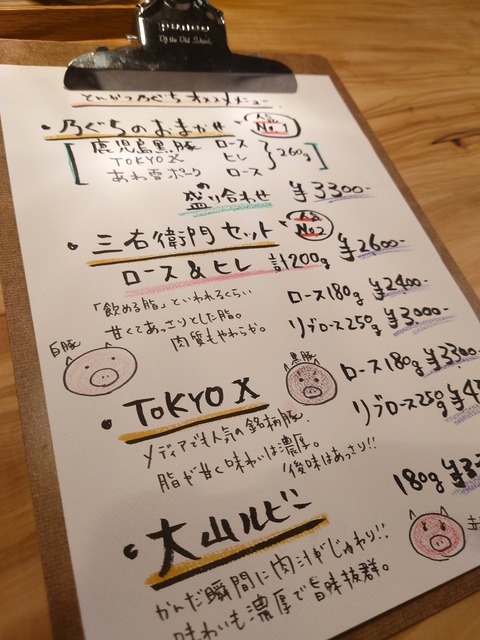 penco
Of the Old School
とんかつ乃ぐち オススメメニュー
・乃ぐちのおまかせ 人気No.1
鹿児島黒豚 ロース
TOKYO X ヒレ 260g
あわ雪ポーク ロース
の盛り合わせ ¥3300-
・三右衛門セット 人気No.2
ロース & ヒレ 計200g ¥2600-
「飲める脂」といわれるくらい
甘くてあっさりとした脂。
肉質もやわらか。
ロース180g ¥2400-
リブロース250g ¥3000-
白豚
・TOKYO X
黒豚
メディアでも人気の銘柄豚。
脂が甘く味わいは濃厚。
後味はあっさり!!
ロース180g ¥3300-
リブロース250g ¥4
・大山ルビー
180g ¥3
かんだ瞬間に肉汁がじゅわり!!
味わいも濃厚で旨味抜群。